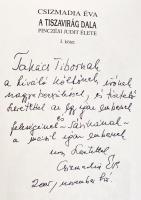 CSIZMADIA ÉVA
A TISZAVIRÁG DALA
PINCZÉSI JUDIT ÉLETE
I. kötet
Takács Tibornak
a kiváló költőnek, írónak
nagyrabecsüléssel, és tisztelő
szeretettel az igaz embernek
és
feleségének – Sárikának –
a másik igaz embernek
Csizmadia Éva
2005. november